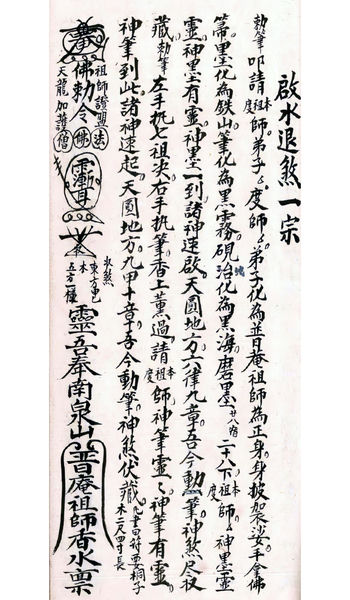 啟水退煞一宗
勅筆 叩請本祖度師弟子々度師々弟子化為普庵祖師為正身身披袈裟手金佛
箒墨化為鉄山筆化為黑霧硯池化為黑海磨墨廿八宿二十八下本祖度師々神墨靈
靈神墨有靈神墨一到諸神速啟天圓地方六律九章吾今動筆神煞尽收
藏 勅筆 左手扒七祖決右手扒筆香上薰過請本祖度師神筆靈々神筆有靈
神筆到此諸神速起天圓地方九甲十吾吾今動筆神煞伏藏 凡書田符要桐子木二尺四寸長
佛勅令 祖師證盟 天龍加護 法佛僧 水煞 木 東方甲乙 五方一樣 靈吾奉南泉山普庵祖師香水稟